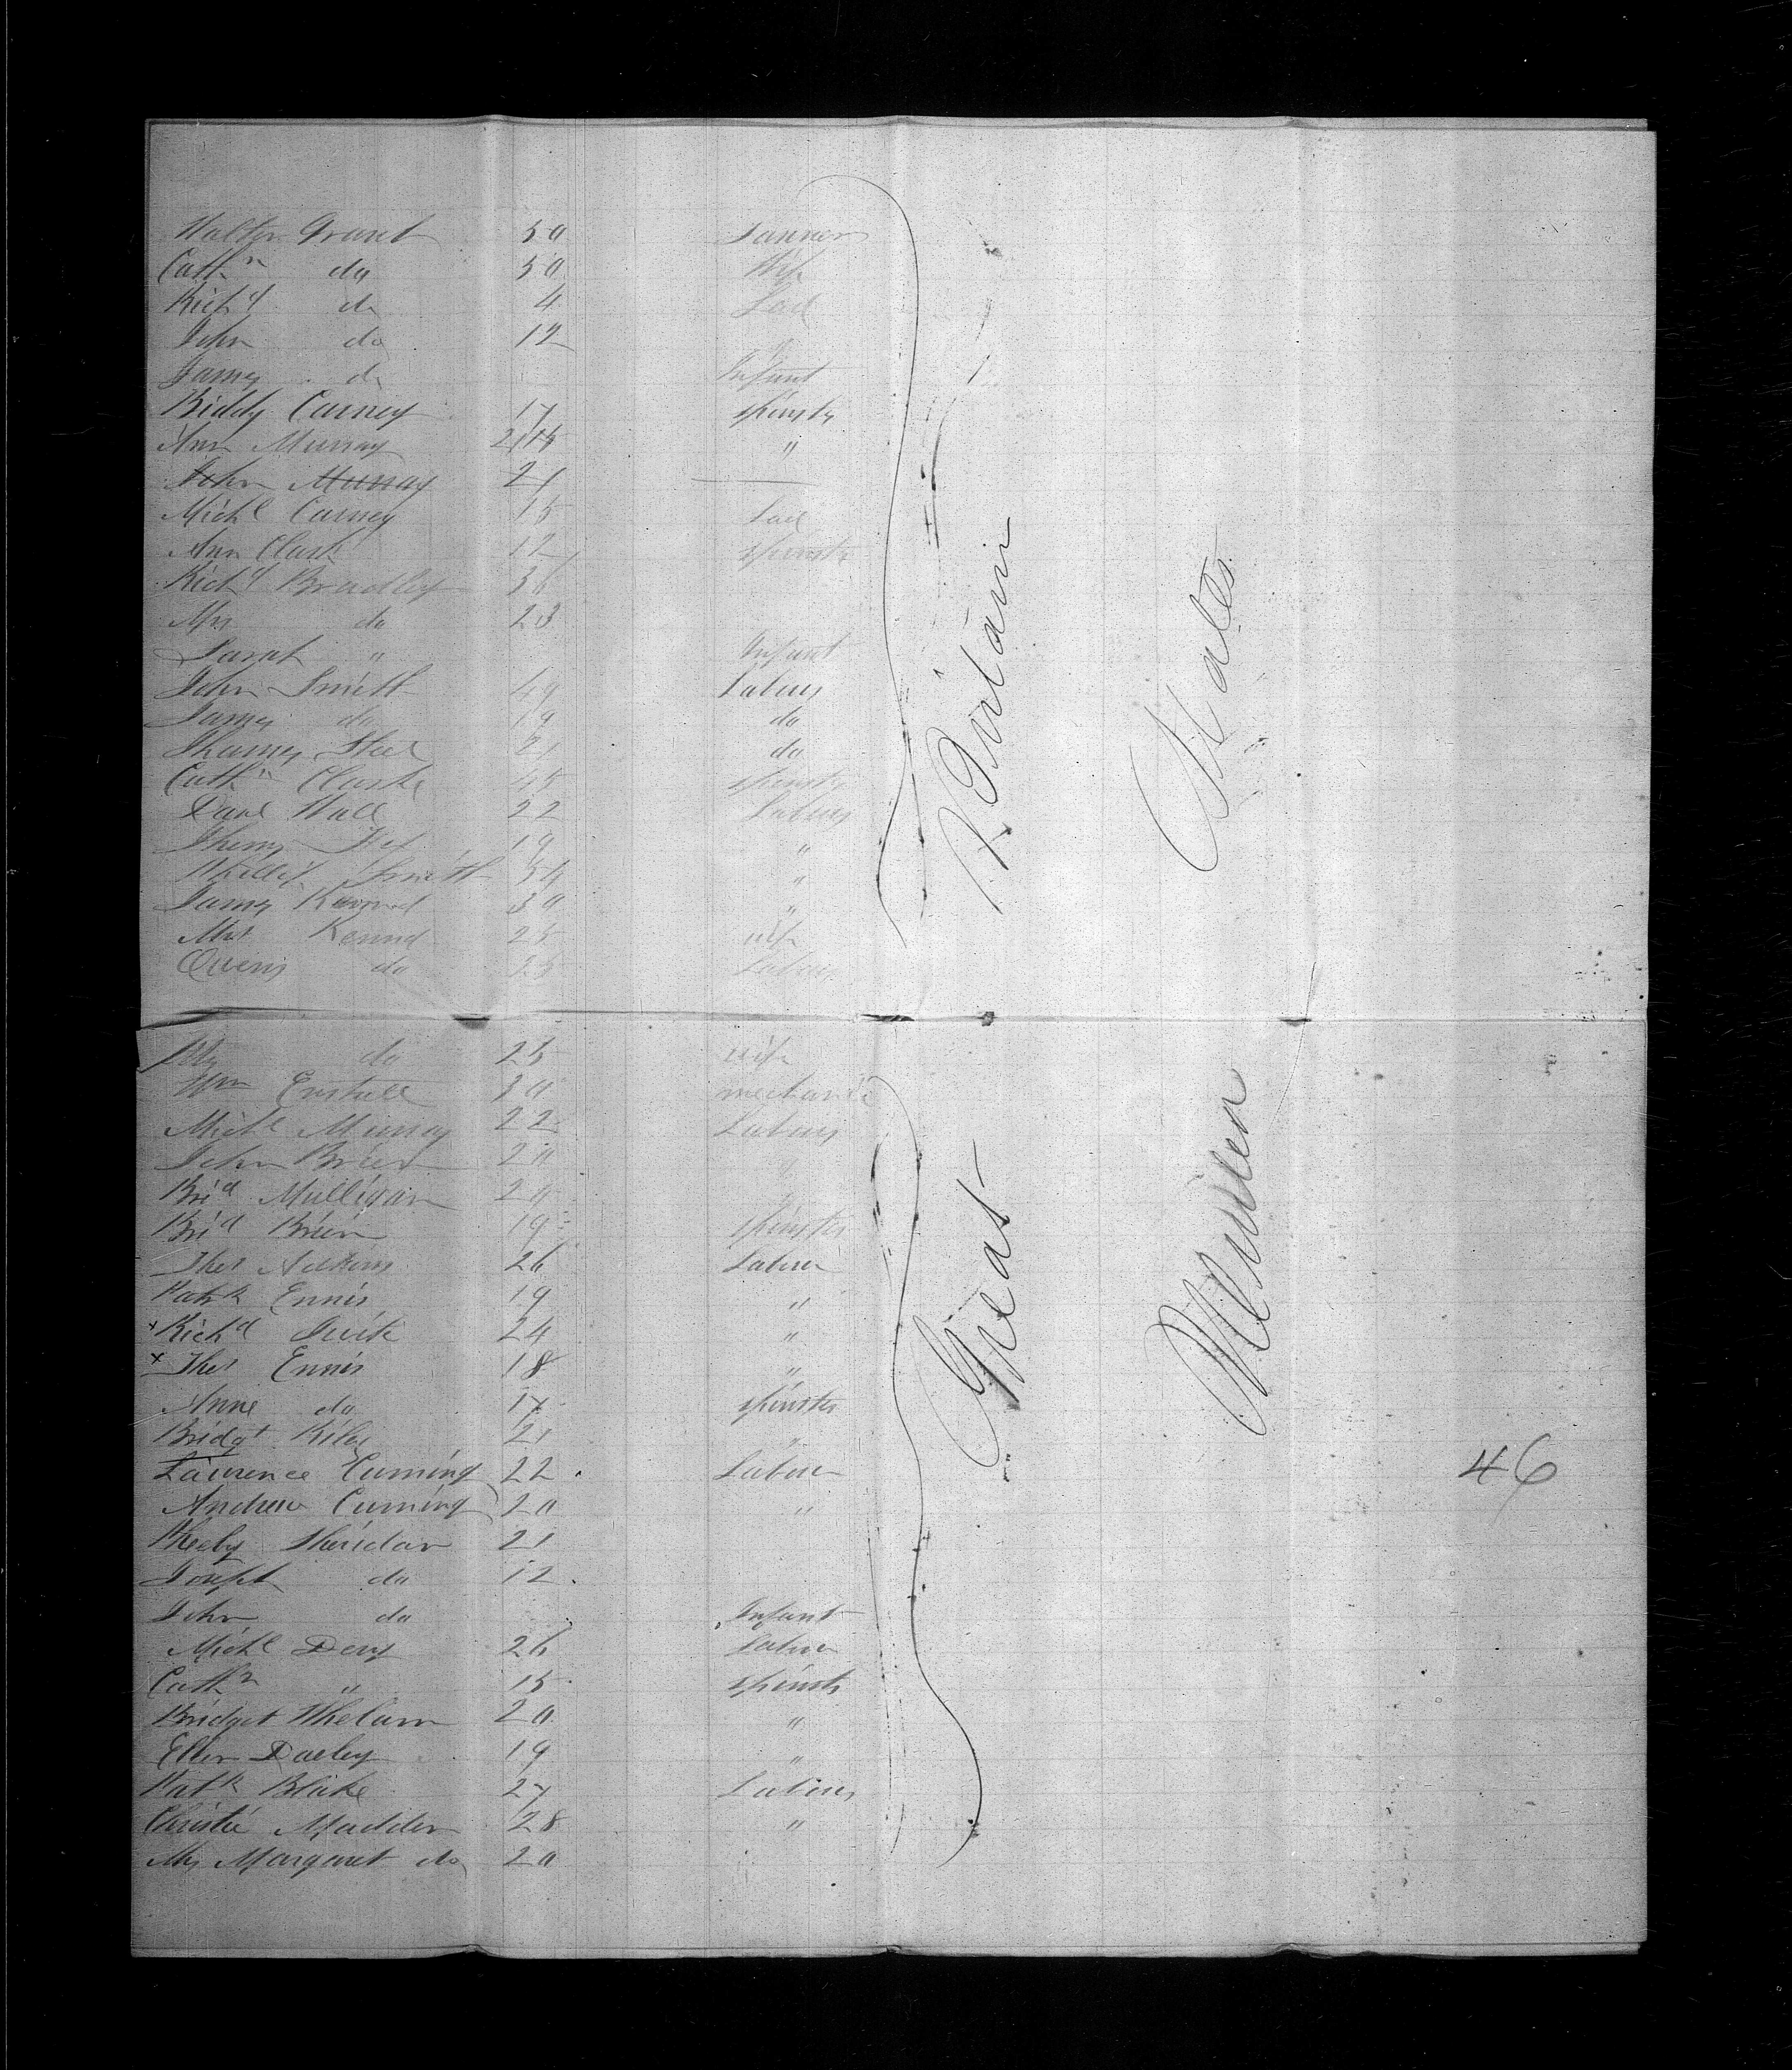 Walter Grant 50 Tanner
Cathn do 50 Wife
Richd do 4 Lad
John do 12 "
James do Infant
Biddy Carney 17 spinstr
Ann Murray "
John Murray 21
Michl Carney 15 Lad
Ann Clark 12 spinstr
Richd Bradley 36
Mrs do 23
Sarah " Infant
John Smith 49 Labour
James do 19 do
Thomas Steel 21 do
Cathn Clarke 45 spinstr
Danl Hall 22 Labour
19 "
Phillip Smith 54 "
James 30 "
Mrs 25 wife
Owens do 25 Labour
do 25 wife
Wm 30 mechanic
Michl Murray 22 Labour
John Brien 20 "
Brid Mulligan 20 "
Brid Brien 19 spinster
Thos Adkins 26 Labour
Patk Ennis 19 "
x Richd 24 "
x Thos Ennis 18 "
Anne do 17 spinster
Bridgt Riley 21 "
Laurence Cuming 22 Labour
Andrew Cuming 20 "
Sheridan 21
Joseph do 12
John do Infant
Michl 26 Labour
Cathn " 15 spinstr
Bridget Whelan 20 "
Ellen Darley 19 "
Patk Blake 27 Labour
Christie Madden 28 "
Mrs Margaret do 20
Great Britain
States
46